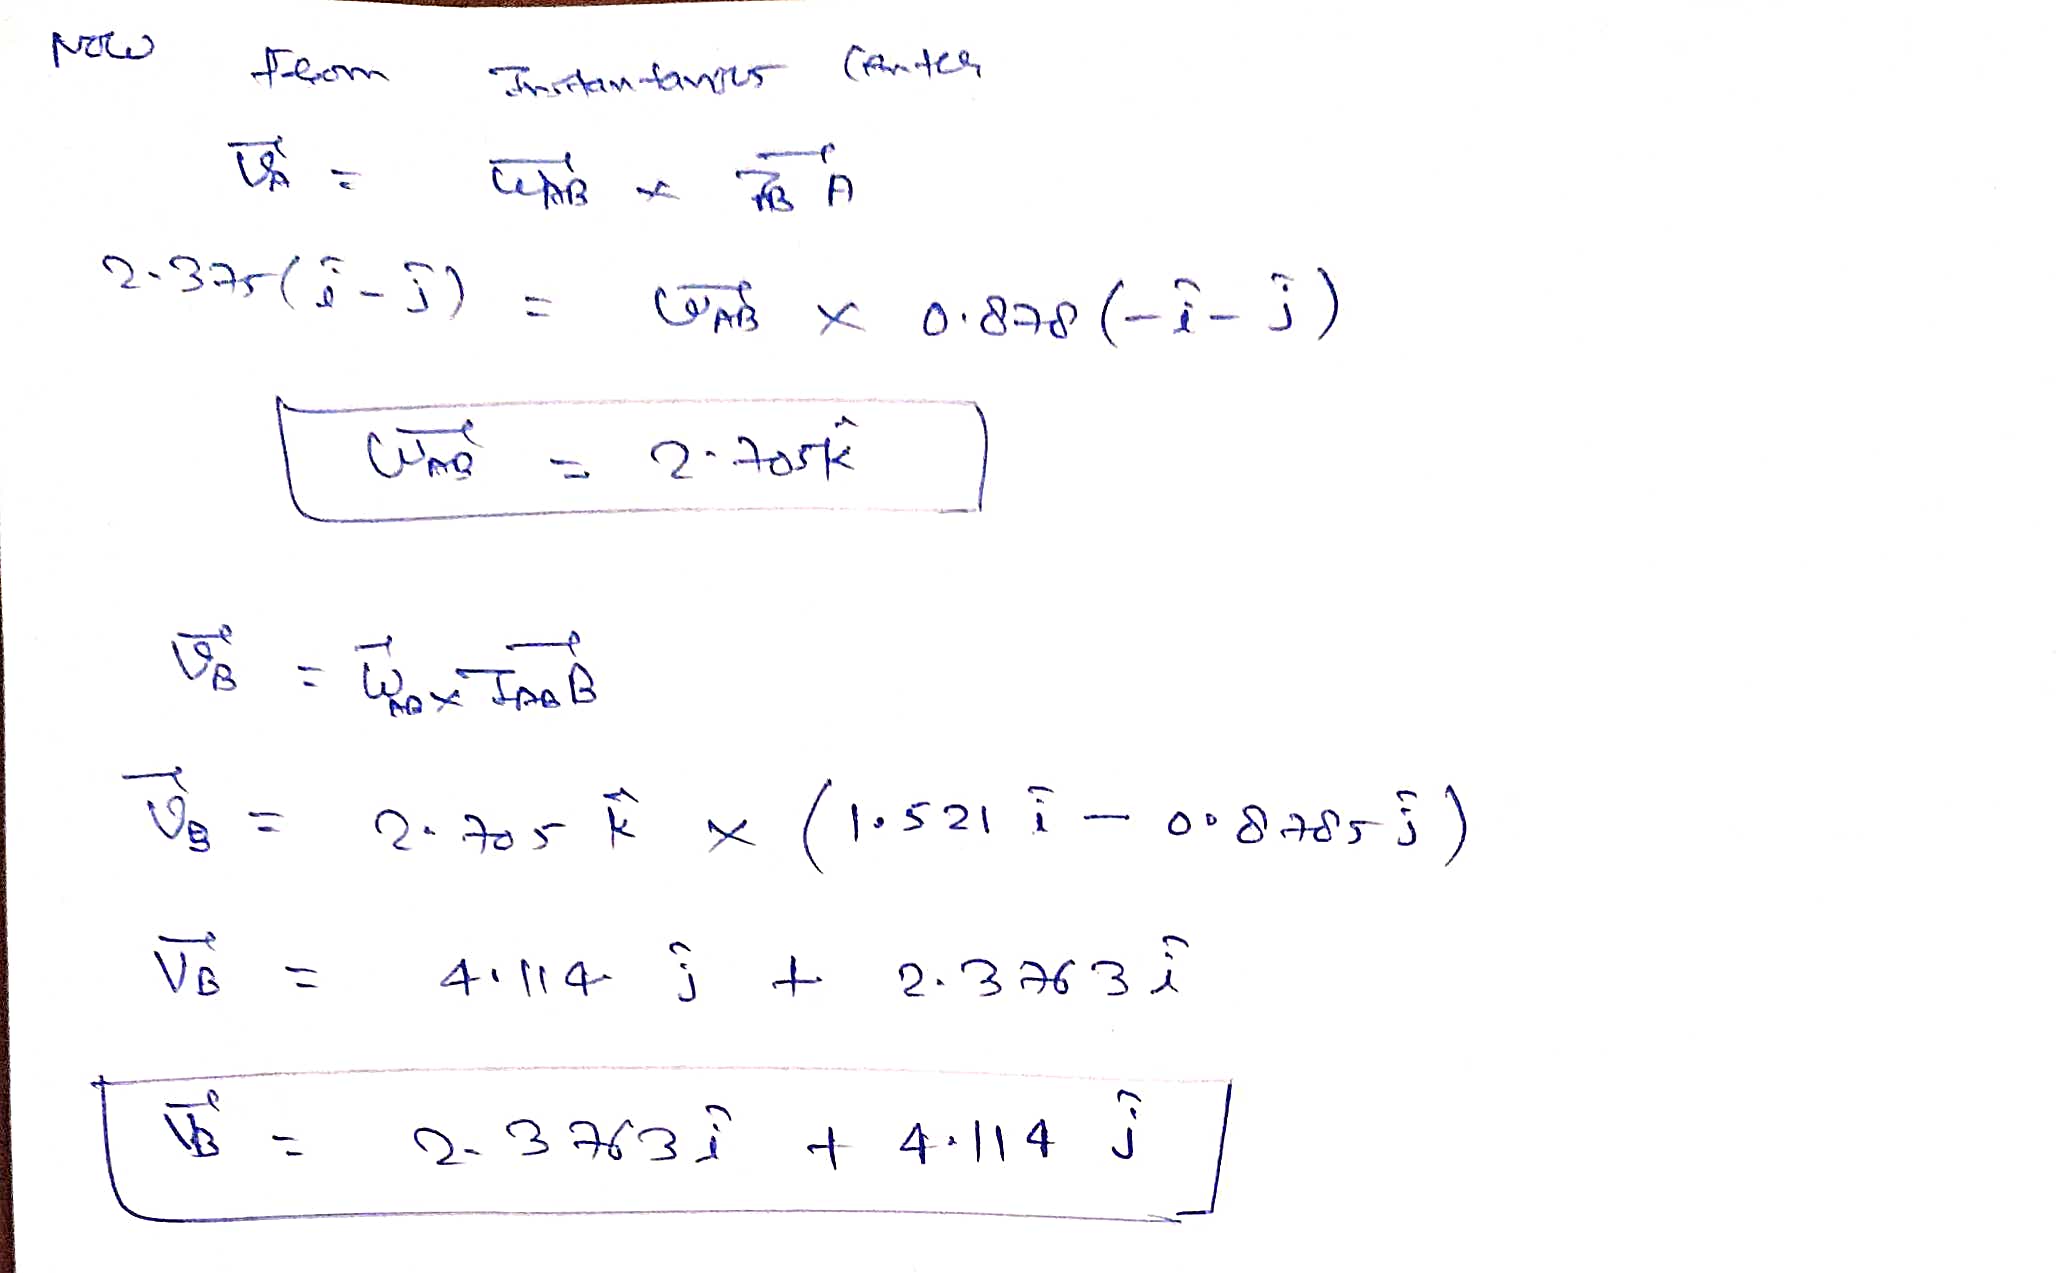 Now from Instantanios Center
V⃗_A = ω⃗_AB × I⃗_AB A
2.375(î - ĵ) = ω⃗_AB × 0.878(-î - ĵ)
ω⃗_AB = 2.705k̂
V⃗_B = ω⃗_AB × I⃗_AB B
V⃗_B = 2.705 k̂ × (1.521 î - 0.8785 ĵ)
V⃗_B = 4.114 ĵ + 2.3763 î
V⃗_B = 2.3763 î + 4.114 ĵ